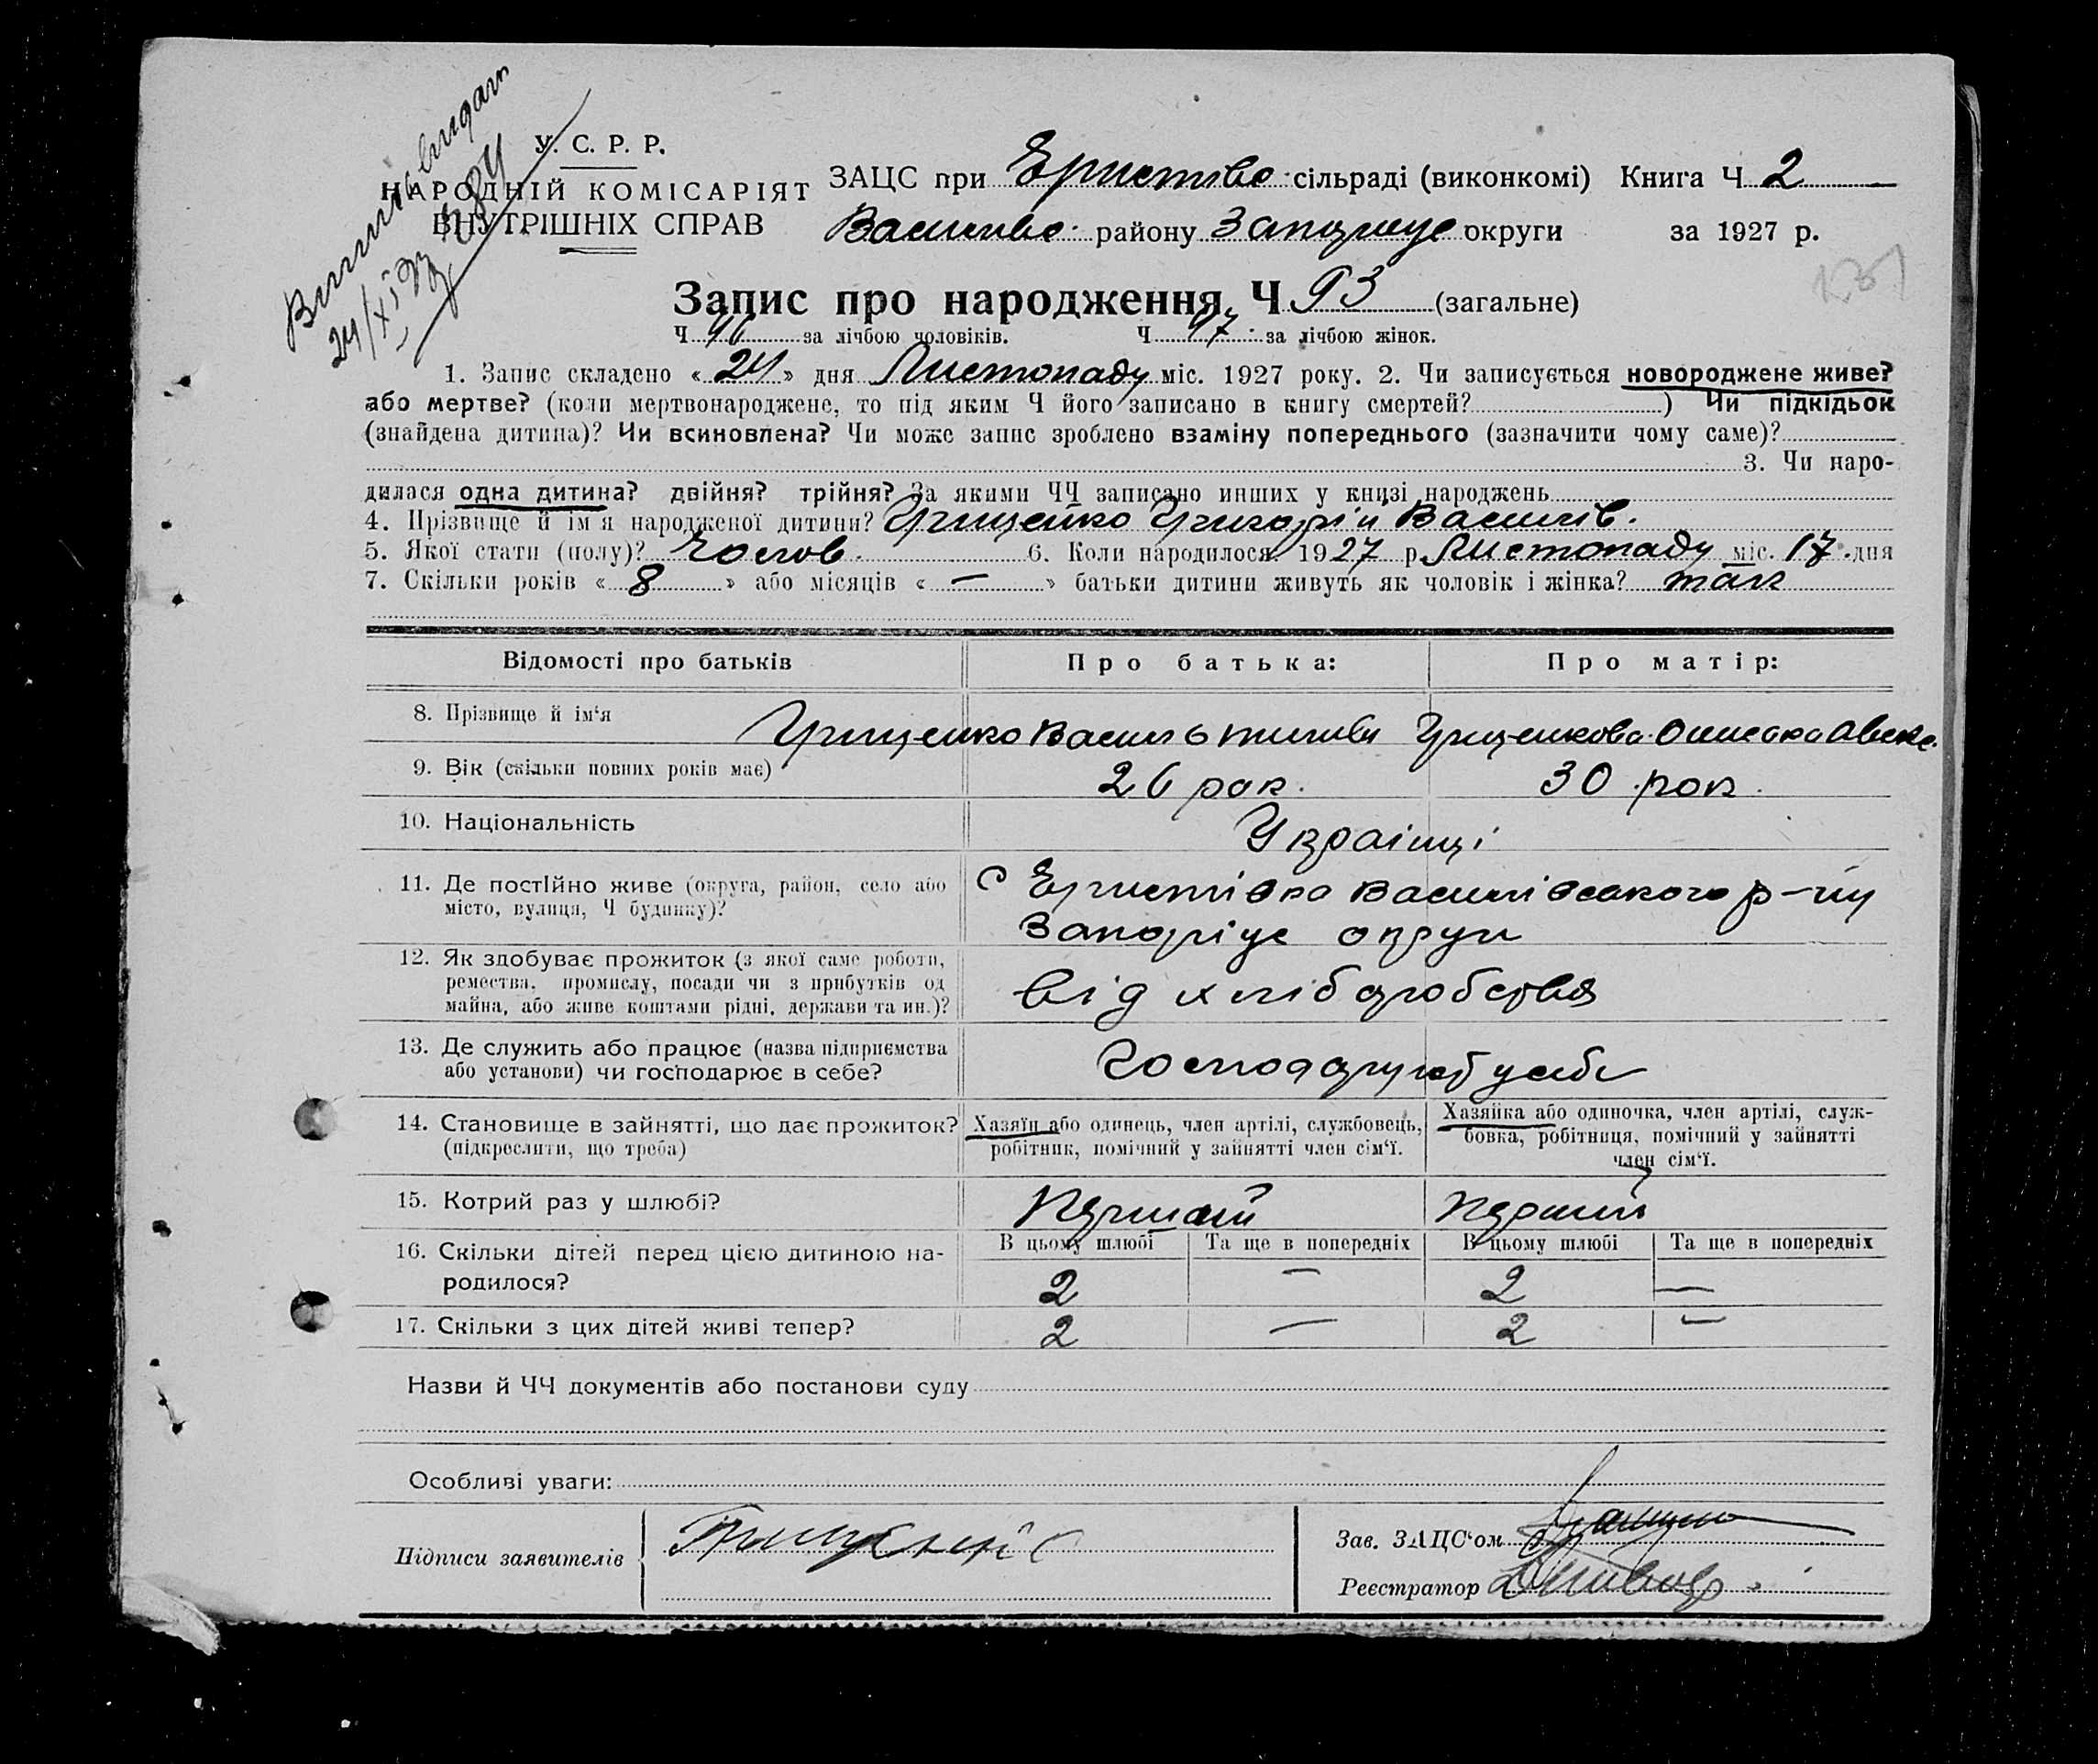 У. С. Р. Р.
НАРОДНІЙ КОМІСАРІЯТ
ВНУТРІШНІХ СПРАВ
ЗАЦС при Еристовс. сільраді (виконкомі) Книга Ч 2
Василівс. району Запоріж округи за 1927 р.
Запис про народження Ч 93 (загальне)
Ч 46 за лічбою чоловіків. Ч 47 за лічбою жінок.
1. Запис складено « 24 » дня Листопаду міс. 1927 року. 2. Чи записується новороджене живе?
або мертве? (коли мертвонароджене, то під яким Ч його записано в книгу смертей? ) Чи підкідьок
(знайдена дитина)? Чи всиновлена? Чи може запис зроблено взаміну попереднього (зазначити чому саме)?
3. Чи наро-
дилася одна дитина? двійня? трійня? За якими ЧЧ записано инших у книзі народжень
4. Прізвище й ім'я народженої дитини? Грищенко Григорій Василів.
5. Якої стати (полу)? Чолов. 6. Коли народилося? 1927 р. Листопаду міс. 17 дня
7. Скільки років « 8 » або місяців « — » батьки дитини живуть як чоловік і жінка? так
Відомості про батьків Про батька: Про матір:
8. Прізвище й ім'я Грищенко Василь Грищенкова
9. Вік (скільки повних років має) 26 рок. 30 рок.
10. Національність Українці
11. Де постійно живе (округа, район, село або
місто, вулиця, Ч будинку)?
с Еристівка Василівського р-ну
Запоріце округи
12. Як здобуває прожиток (з якої саме роботи,
ремества, промислу, посади чи з прибутків од
майна, або живе коштами рідні, держави та ин.)?
від хліборобства
13. Де служить або працює (назва підприємства
або установи) чи господарює в себе?
14. Становище в зайнятті, що дає прожиток?
(підкреслити, що треба)
Хазяїн або одинець, член артілі, службовець,
робітник, помічний у зайнятті член сім'ї.
Хазяйка або одиночка, член артілі, служ-
бовка, робітниця, помічний у зайнятті
член сім'ї.
15. Котрий раз у шлюбі? Перший Перший
16. Скільки дітей перед цією дитиною на-
родилося?
В цьому шлюбі Та ще в попередніх В цьому шлюбі Та ще в попередніх
2 — 2 —
17. Скільки з цих дітей живі тепер? 2 — 2 —
Назви й ЧЧ документів або постанови суду
Особливі уваги:
Підписи заявителів
Зав. ЗАЦС'ом
Реєстратор